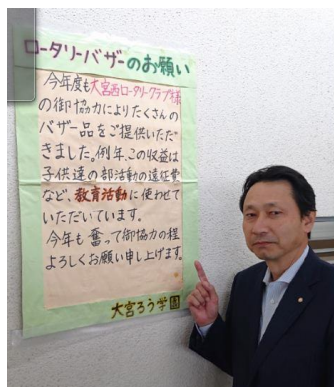 ロータリーバザーのお願い
今年度も大宮西ロータリークラブ様
の御協力によりたくさんの
バザー品をご提供いただ
きました。例年、この収益は
子供達の部活動の遠征費
など、教育活動に使わせて
いただいています。
今年も奮って御協力の程
よろしくお願い申し上げます。
大宮ろう学園